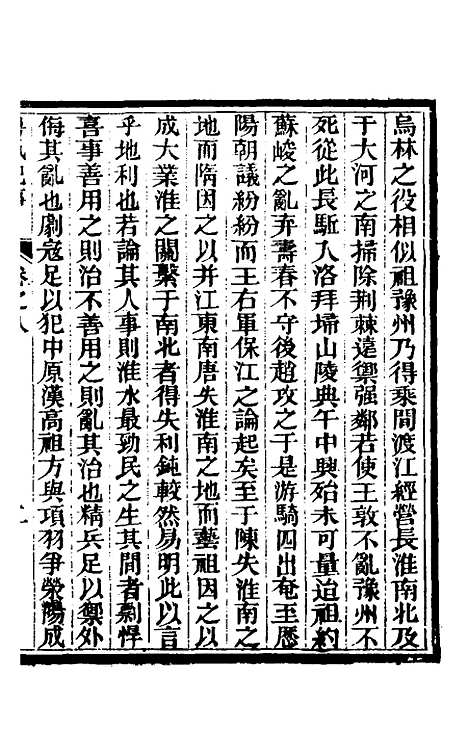 烏林之役相似祖豫州乃得乘間渡江經營長淮南北及
于大河之南掃除荆棘遠禦强鄰若使王敦不亂豫州不
死從此長驅入洛拜埽山陵典午中興殆未可量迨祖約
蘇峻之亂弃壽春不守後趙攻之于是游騎四出奄至歷
陽朝議紛紛而王右軍保江之論起矣至于陳失淮南之
地而隋因之以并江東南唐失淮南之地而藝祖因之以
成大業淮之關繫于南北者得失利鈍較然易明此以言
乎地利也若論其人事則淮水最勁民之生其間者剽悍
喜事善用之則治不善用之則亂其治也精兵足以禦外
侮其亂也劇寇足以犯中原漢高祖方與項羽爭滎陽成
卷之八